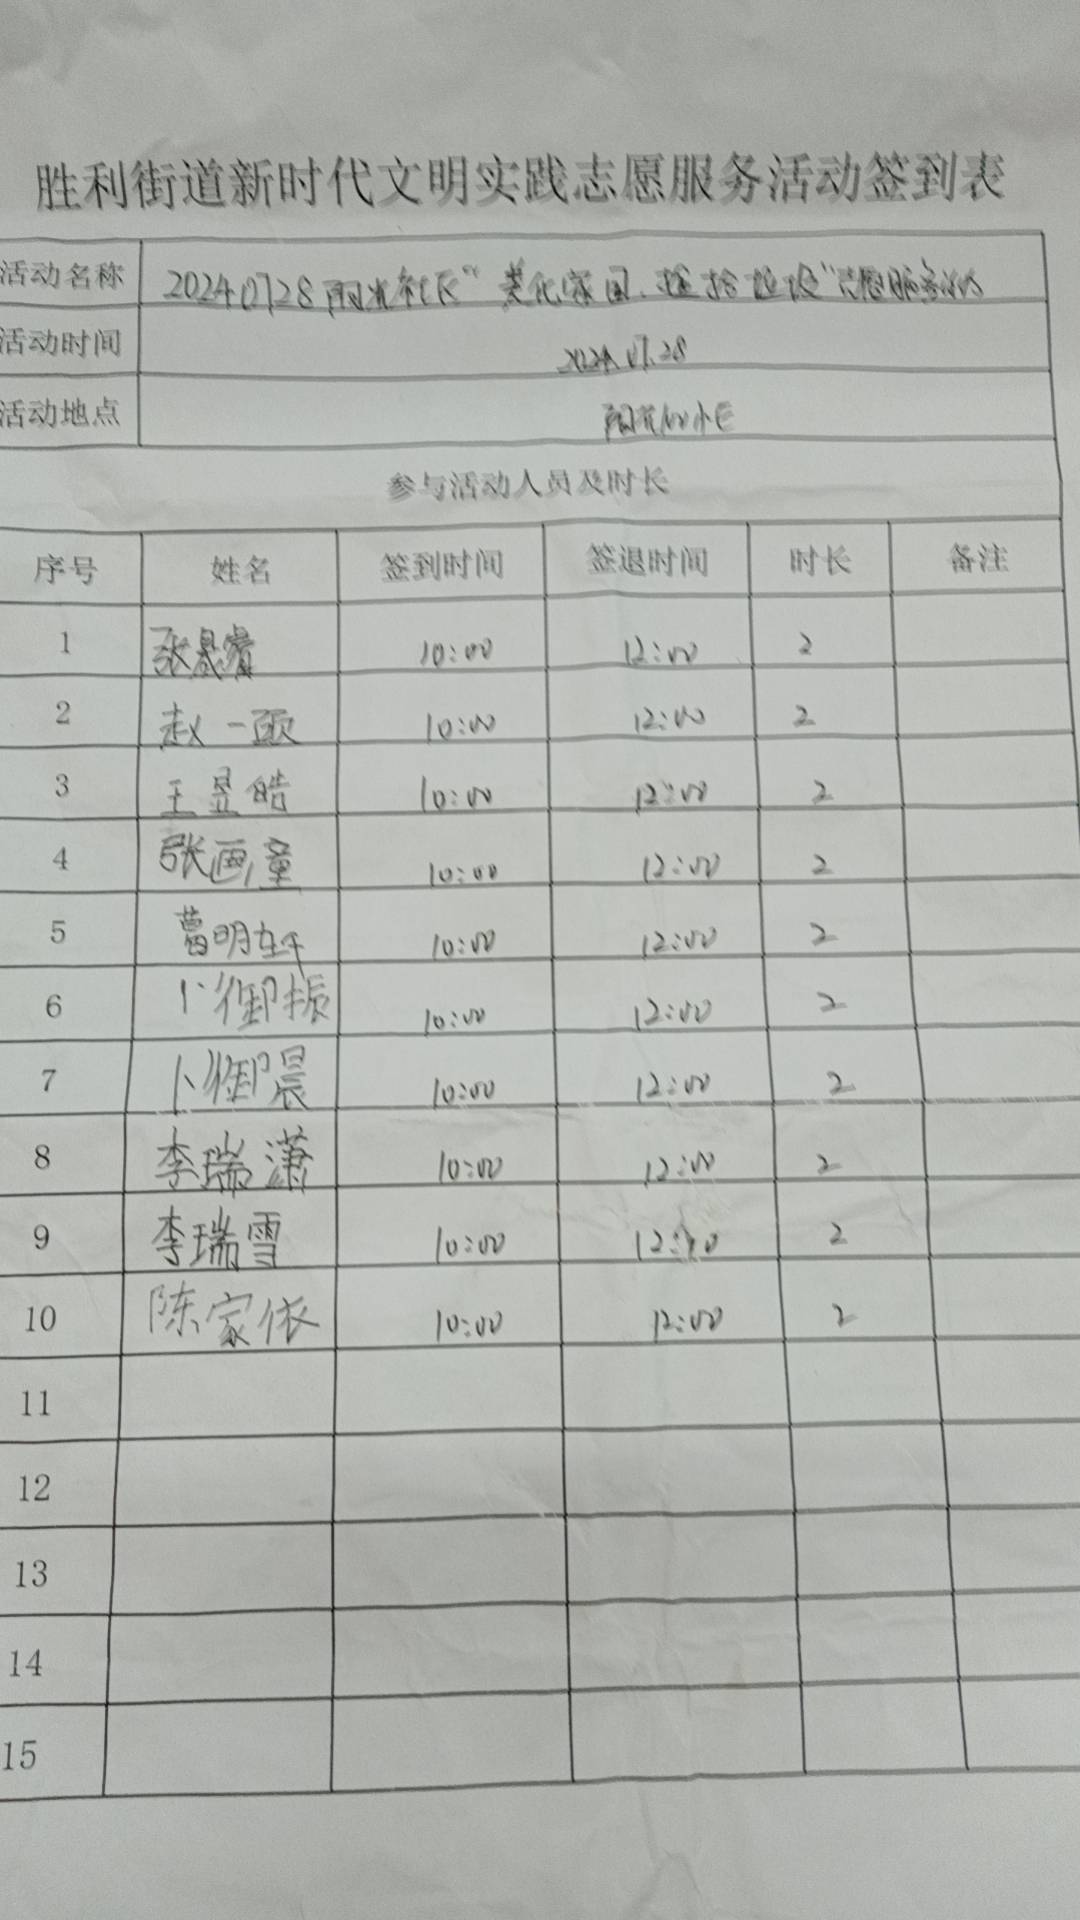 胜利街道新时代文明实践志愿服务活动签到表
活动名称 20240728阳光社区“美化家园、捡拾垃圾”志愿服务活动
活动时间 2024.07.28
活动地点 阳光
参与活动人员及时长
序号 姓名 签到时间 签退时间 时长 备注
1 张晟睿 10:00 12:00 2
2 赵一 10:00 12:00 2
3 王昱皓 10:00 12:00 2
4 张画童 10:00 12:00 2
5 葛明 10:00 12:00 2
6 卜御振 10:00 12:00 2
7 卜御晨 10:00 12:00 2
8 李瑞潇 10:00 12:00 2
9 李瑞雪 10:00 12:00 2
10 陈家依 10:00 12:00 2
11
12
13
14
15